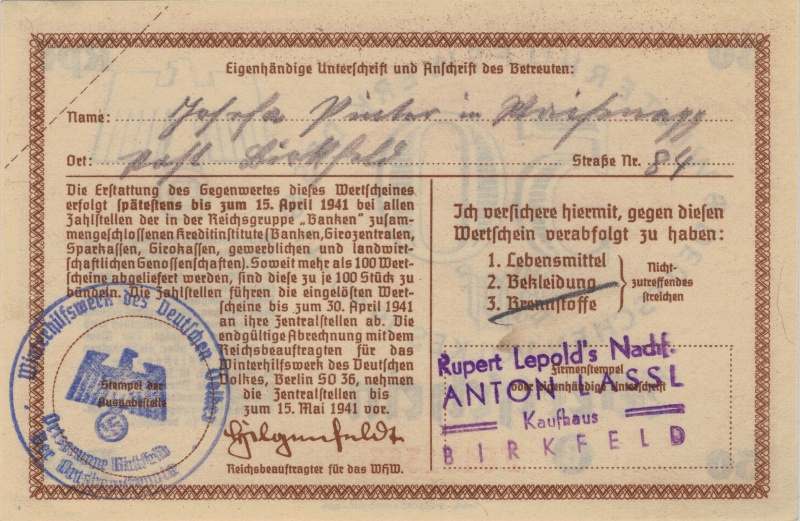 Eigenhändige Unterschrift und Anschrift des Betreuten:
Name: Josefa Pinter in Waisenegg
Ort: Post Birkfeld Straße Nr. 84
Die Erstattung des Gegenwertes dieses Wertscheines
erfolgt spätestens bis zum 15. April 1941 bei allen
Zahlstellen der in der Reichsgruppe „Banken" zusam-
mengeschlossenen Kreditinstitute (Banken, Girozentralen,
Sparkassen, Girokassen, gewerblichen und landwirt-
schaftlichen Genossenschaften). Soweit mehr als 100 Wert-
scheine abgeliefert werden, sind diese zu je 100 Stück zu
bündeln. Die Zahlstellen führen die eingelösten Wert-
scheine bis zum 30. April 1941
an ihre Zentralstellen ab. Die
endgültige Abrechnung mit dem
Reichsbeauftragten für das
Winterhilfswerk des Deutschen
Volkes, Berlin SO 36, nehmen
die Zentralstellen bis
zum 15. Mai 1941 vor.
Hilgenfeldt
Reichsbeauftragter für das WHW.
Winterhilfswerk des Deutschen Volkes
Stempel der
Ausgabestelle
Ortsgruppe Birkfeld
Der
Ich versichere hiermit, gegen diesen
Wertschein verabfolgt zu haben:
1. Lebensmittel
2. Bekleidung
3. Brennstoffe
Nicht-
zutreffendes
streichen
Firmenstempel
oder eigenhändige Unterschrift
Rupert Lepold's Nachf.
ANTON LASSL
Kaufhaus
BIRKFELD